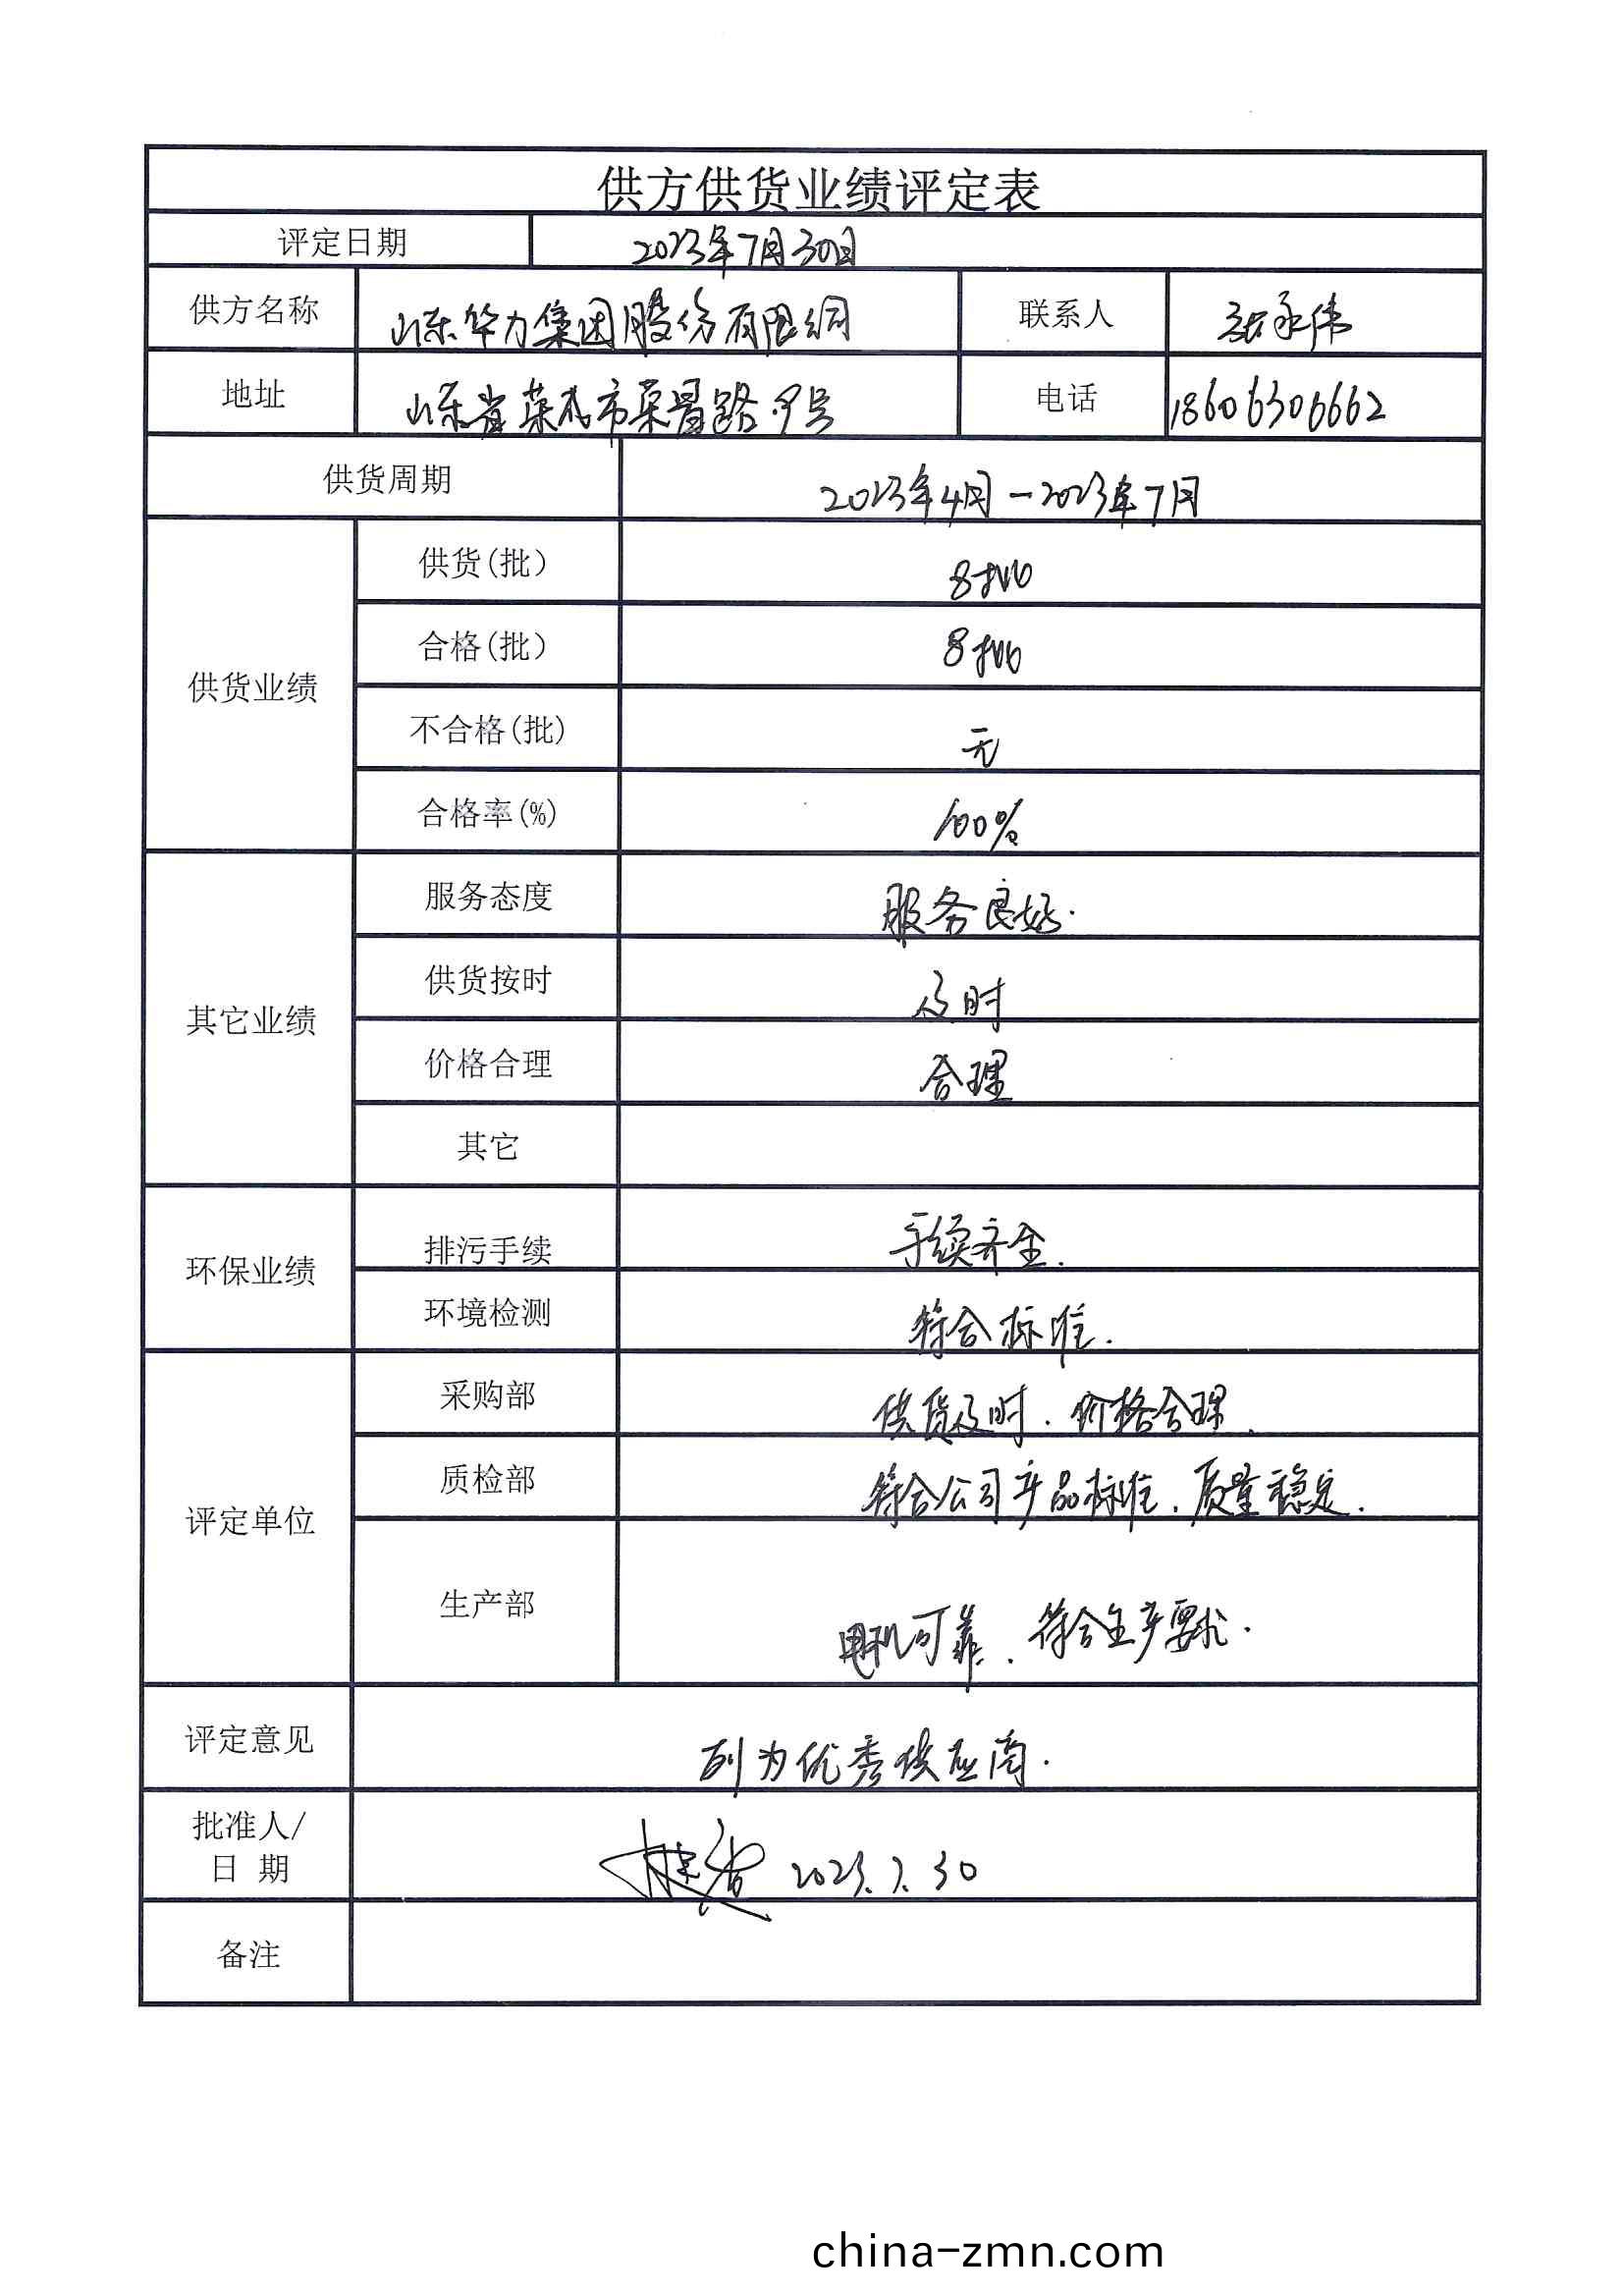 供方供货业绩评定表
评定日期 2023年7月30日
供方名称 山东华力集团股份有限公司 联系人
地址 山东省莱州市莱 路 号 电话 18606306662
供货周期 2023年4月－2023年7月
供货业绩
供货(批) 8批
合格(批) 8批
不合格(批) 无
合格率(%) 100%
其它业绩
服务态度 服务良好.
供货按时 及时
价格合理 合理
其它
环保业绩
排污手续 手续齐全.
环境检测 符合标准.
评定单位
采购部 供货及时. 价格合理.
质检部 符合公司产品标准. 质量稳定.
生产部 电机可靠. 符合生产要求.
评定意见 列为优秀供应商.
批准人/
日 期 2023.7.30
备注
china-zmn.com